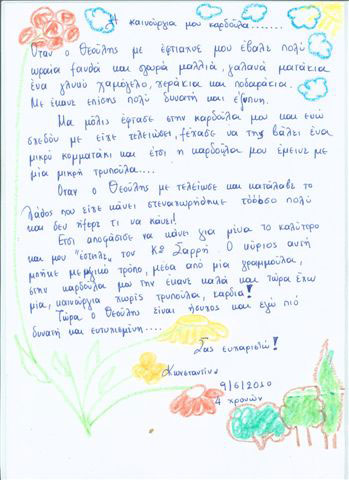 Η καινούργια μου καρδούλα.......
Όταν ο Θεούλης με έφτιαχνε μου έβαλε πολύ
ωραία ξανθά και σγουρά μαλλιά, γαλανά ματάκια
ένα γλυκό χαμόγελο, χεράκια και ποδαράκια.
Με έκανε επίσης πολύ δυνατή και έξυπνη.
Μα μόλις έφτασε στην καρδούλα μου και ενώ
σχεδόν με είχε τελειώσει, ξέχασε να της βάλει ένα
μικρό κομματάκι και έτσι η καρδούλα μου έμεινε με
μία μικρή τρυπούλα....
Όταν ο Θεούλης με τελείωσε και κατάλαβε το
λάθος που είχε κάνει στεναχωρήθηκε τόσοοο πολύ
και δεν ήξερε τι να κάνει!
Έτσι αποφάσισε να κάνει για μένα το καλύτερο
και μου "έστειλε" τον Κο Σαρρή. Ο κύριος αυτή
μπήκε με τρόπο, μέσα από μία γραμμούλα,
στην καρδούλα μου την έκανε καλά και τώρα έχω
μία, καινούργια χωρίς τρυπούλα, καρδιά!
Τώρα ο Θεούλης είναι ήσυχος και εγώ πιό
δυνατή και ευτυχισμένη....
Σας ευχαριστώ!
Κωνσταντίνα
9/6/2010
4 χρονών